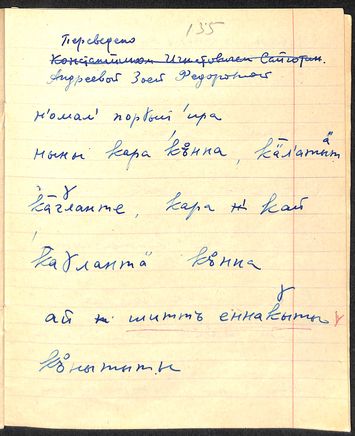 135
Переведено
Константином Игнатовичем Сайготин.
Андреевой Зоей Федоровной
н'омал' порґый ира
ныны кара къ̊нна, кӓлатыт
кӓґланте, кара н' кай
каґлантӓ къ̊нна
ай шиттъ еннаґыты
къ̊нытыты